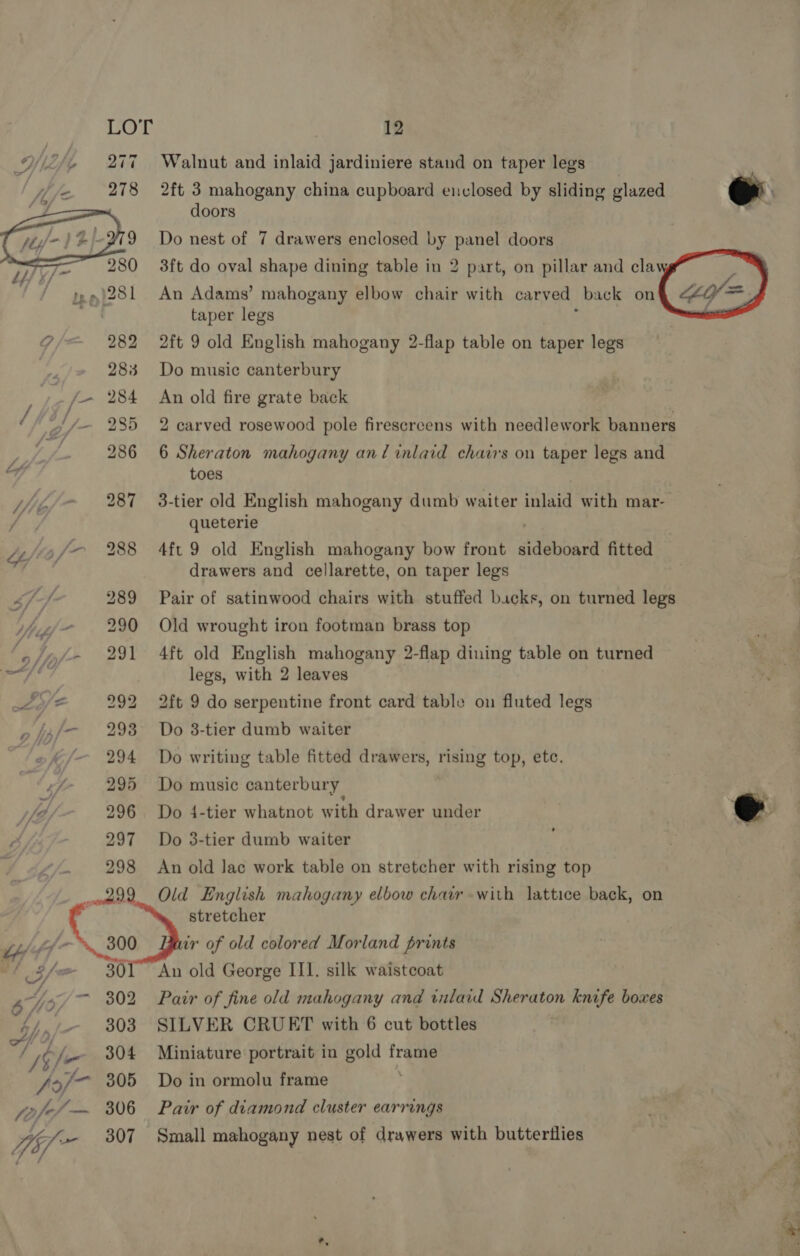 LOT 12
277 Walnut and inlaid jardiniere stand on taper legs
278 2ft 3 mahogany china cupboard enclosed by sliding glazed
doors
279 Do nest of 7 drawers enclosed by panel doors
280 3ft do oval shape dining table in 2 part, on pillar and claw
281 An Adams' mahogany elbow chair with carved back on
taper legs
282 2ft 9 old English mahogany 2-flap table on taper legs
283 Do music canterbury
284 An old fire grate back
285 2 carved rosewood pole firescreens with needlework banners
286 6 Sheraton mahogany and inlaid chairs on taper legs and
toes
287 3-tier old English mahogany dumb waiter inlaid with mar-
queterie
288 4ft 9 old English mahogany bow front sideboard fitted
drawers and cellarette, on taper legs
289 Pair of satinwood chairs with stuffed backs, on turned legs
290 Old wrought iron footman brass top
291 4ft old English mahogany 2-flap dining table on turned
legs, with 2 leaves
292 2ft 9 do serpentine front card table on fluted legs
293 Do 3-tier dumb waiter
294 Do writing table fitted drawers, rising top, etc.
295 Do music canterbury
296 Do 4-tier whatnot with drawer under
297 Do 3-tier dumb waiter
298 An old lac work table on stretcher with rising top
299 Old English mahogany elbow chair with lattice back, on
stretcher
300 Pair of old colored Morland prints
301 An old George III. silk waistcoat
302 Pair of fine old mahogany and inlaid Sheraton knife boxes
303 SILVER CRUET with 6 cut bottles
304 Miniature portrait in gold frame
305 Do in ormolu frame
306 Pair of diamond cluster earrings
307 Small mahogany nest of drawers with butterflies